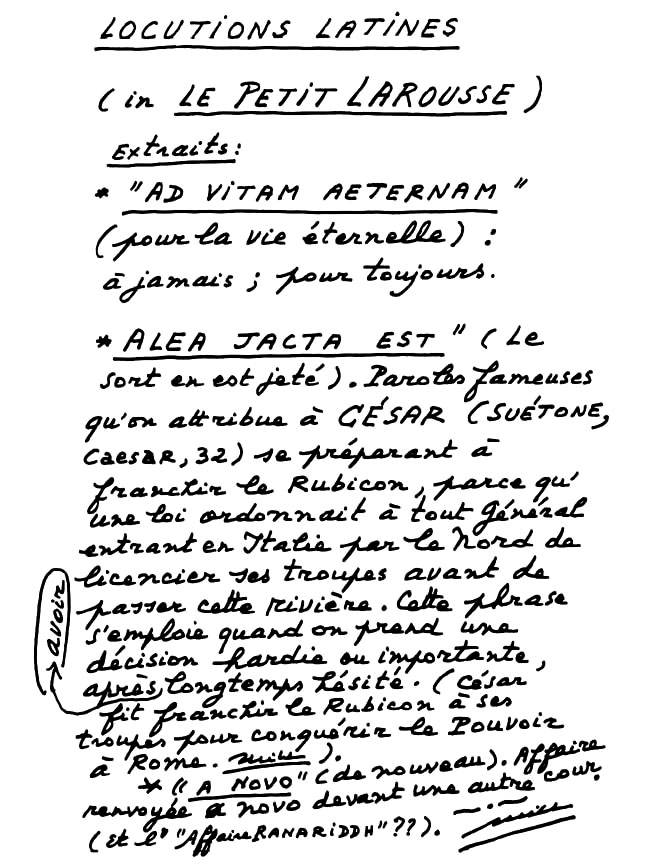 LOCUTIONS LATINES
(in LE PETIT LAROUSSE)
Extraits:
* "AD VITAM AETERNAM"
(pour la vie éternelle) :
à jamais ; pour toujours.
* ALEA JACTA EST" (Le
sort en est jeté). Paroles fameuses
qu'on attribue à CÉSAR (SUÉTONE,
Caesar, 32) se préparant à
franchir le Rubicon, parce qu'
une loi ordonnait à tout Général
entrant en Italie par le Nord de
licencier ses troupes avant de
passer cette rivière. Cette phrase
s'emploie quand on prend une
décision hardie ou importante,
après, longtemps hésité. (César
avoir
fit franchir le Rubicon à ses
troupes pour conquérir le Pouvoir
à Rome. ).
* (" A NOVO" (de nouveau). Affaire
renvoyée a novo devant une autre cour.
(Et l' "Affaire RANARIDDH"??).